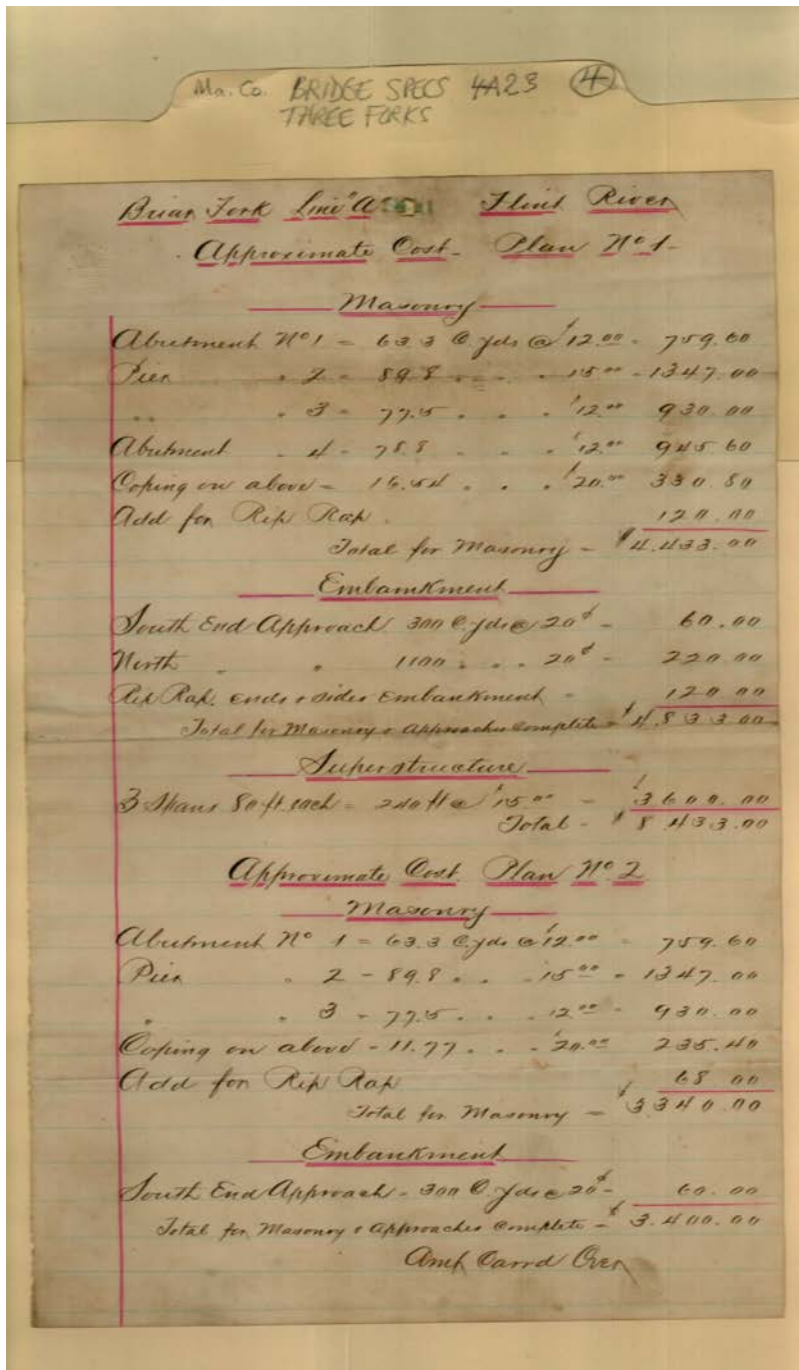 Ma. Co. BRIDGE SPECS 4A23 4
THREE FORKS
Briar Fork Line "A" Flint River
Approximate Cost - Plan No 1 -
Masonry
Abutment No 1 = 63.3 C. yds @ $12.00 = 759.60
Pier " 2 - 89.8 " " 15.00 - 1347.00
" " 3 = 77.5 " " " $12.00 930.00
Abutment " 4 - 78.8 " " $12.00 945.60
Coping on above = 16.54 " " $20.00 330.80
Add for Rip Rap 120.00
Total for Masonry = $4.433.00
Embankment
South End Approach 300 C. yds @ 20¢ - 60.00
North " " 1100 " " " 20¢ - 220.00
Rip Rap. ends & sides Embankment = 120.00
Total for Masonry & Approaches Complete = $4.833.00
Superstructure
3 Spans 80 ft. each = 240 ft @ $15.00 = $3600.00
Total - $8.433.00
Approximate Cost. Plan No. 2
Masonry
Abutment No 1 = 63.3 C. yds @ $12.00 = 759.60
Pier " 2 - 89.8 " " 15.00 - 1347.00
" " 3 - 77.5 " " " 12.00 - 930.00
Coping on above - 11.77 " " " $20.00 235.40
Add for Rip Rap 68.00
Total for Masonry = $3340.00
Embankment
South End Approach - 300 C. yds @ 20¢ - 60.00
Total for Masonry & Approaches Complete = $3.400.00
Amt Carrd Over